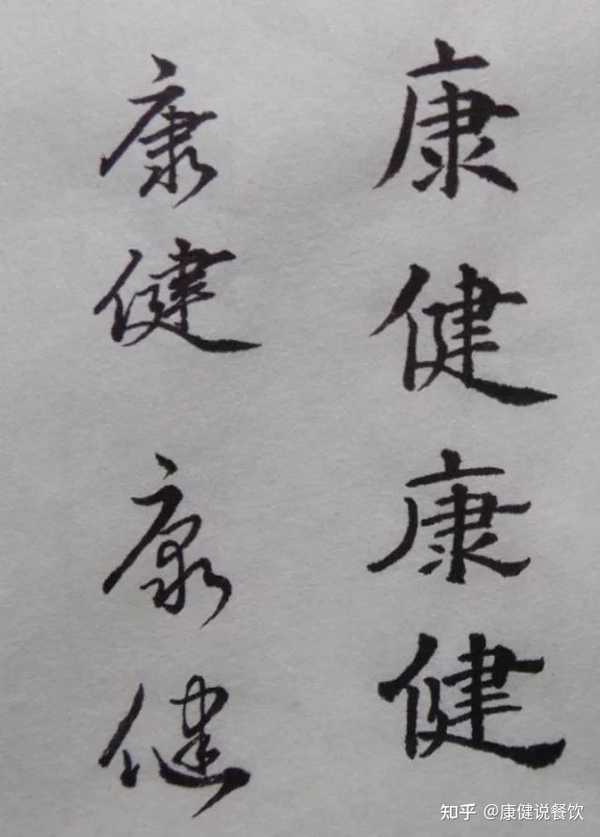 康健康健
康健康健
知乎 @康健说餐饮